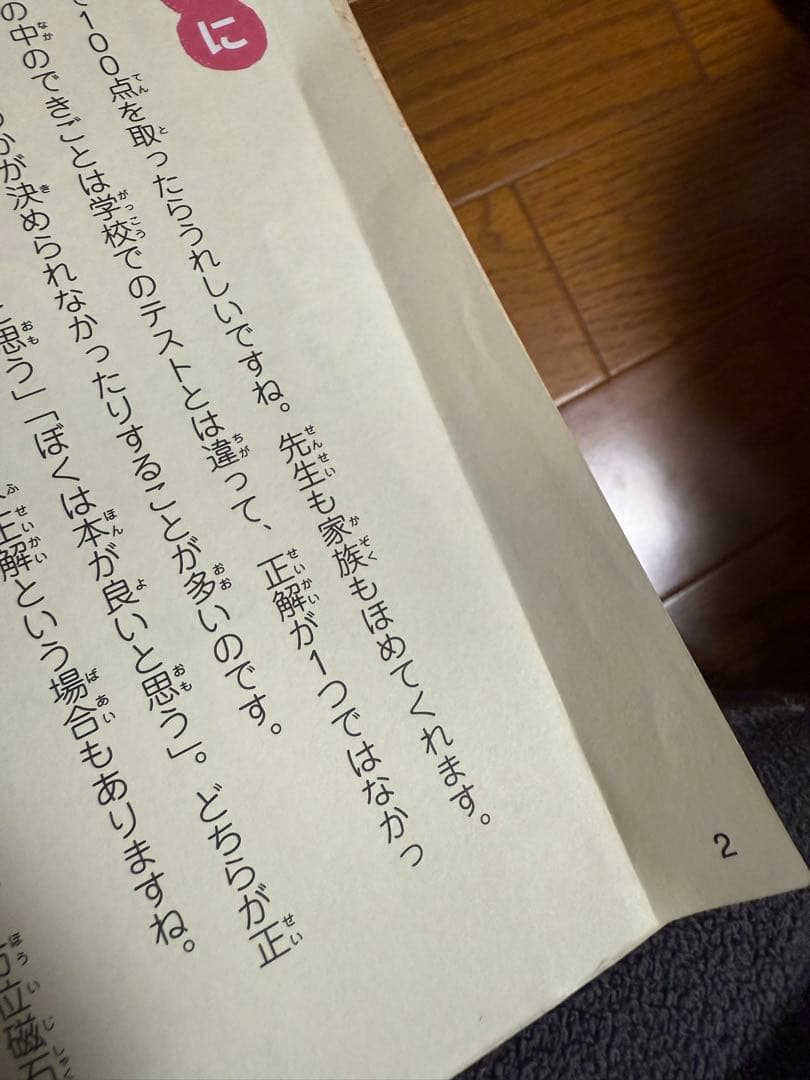 に
100点を取ったらうれしいですね。先生も家族もほめてくれます。
の中のできごとは学校でのテストとは違って、正解が1つではなかっ
かが決められなかったりすることが多いのです。
思う」「ぼくは本が良いと思う」。どちらが正
正解という場合もありますね。
方位磁石
2